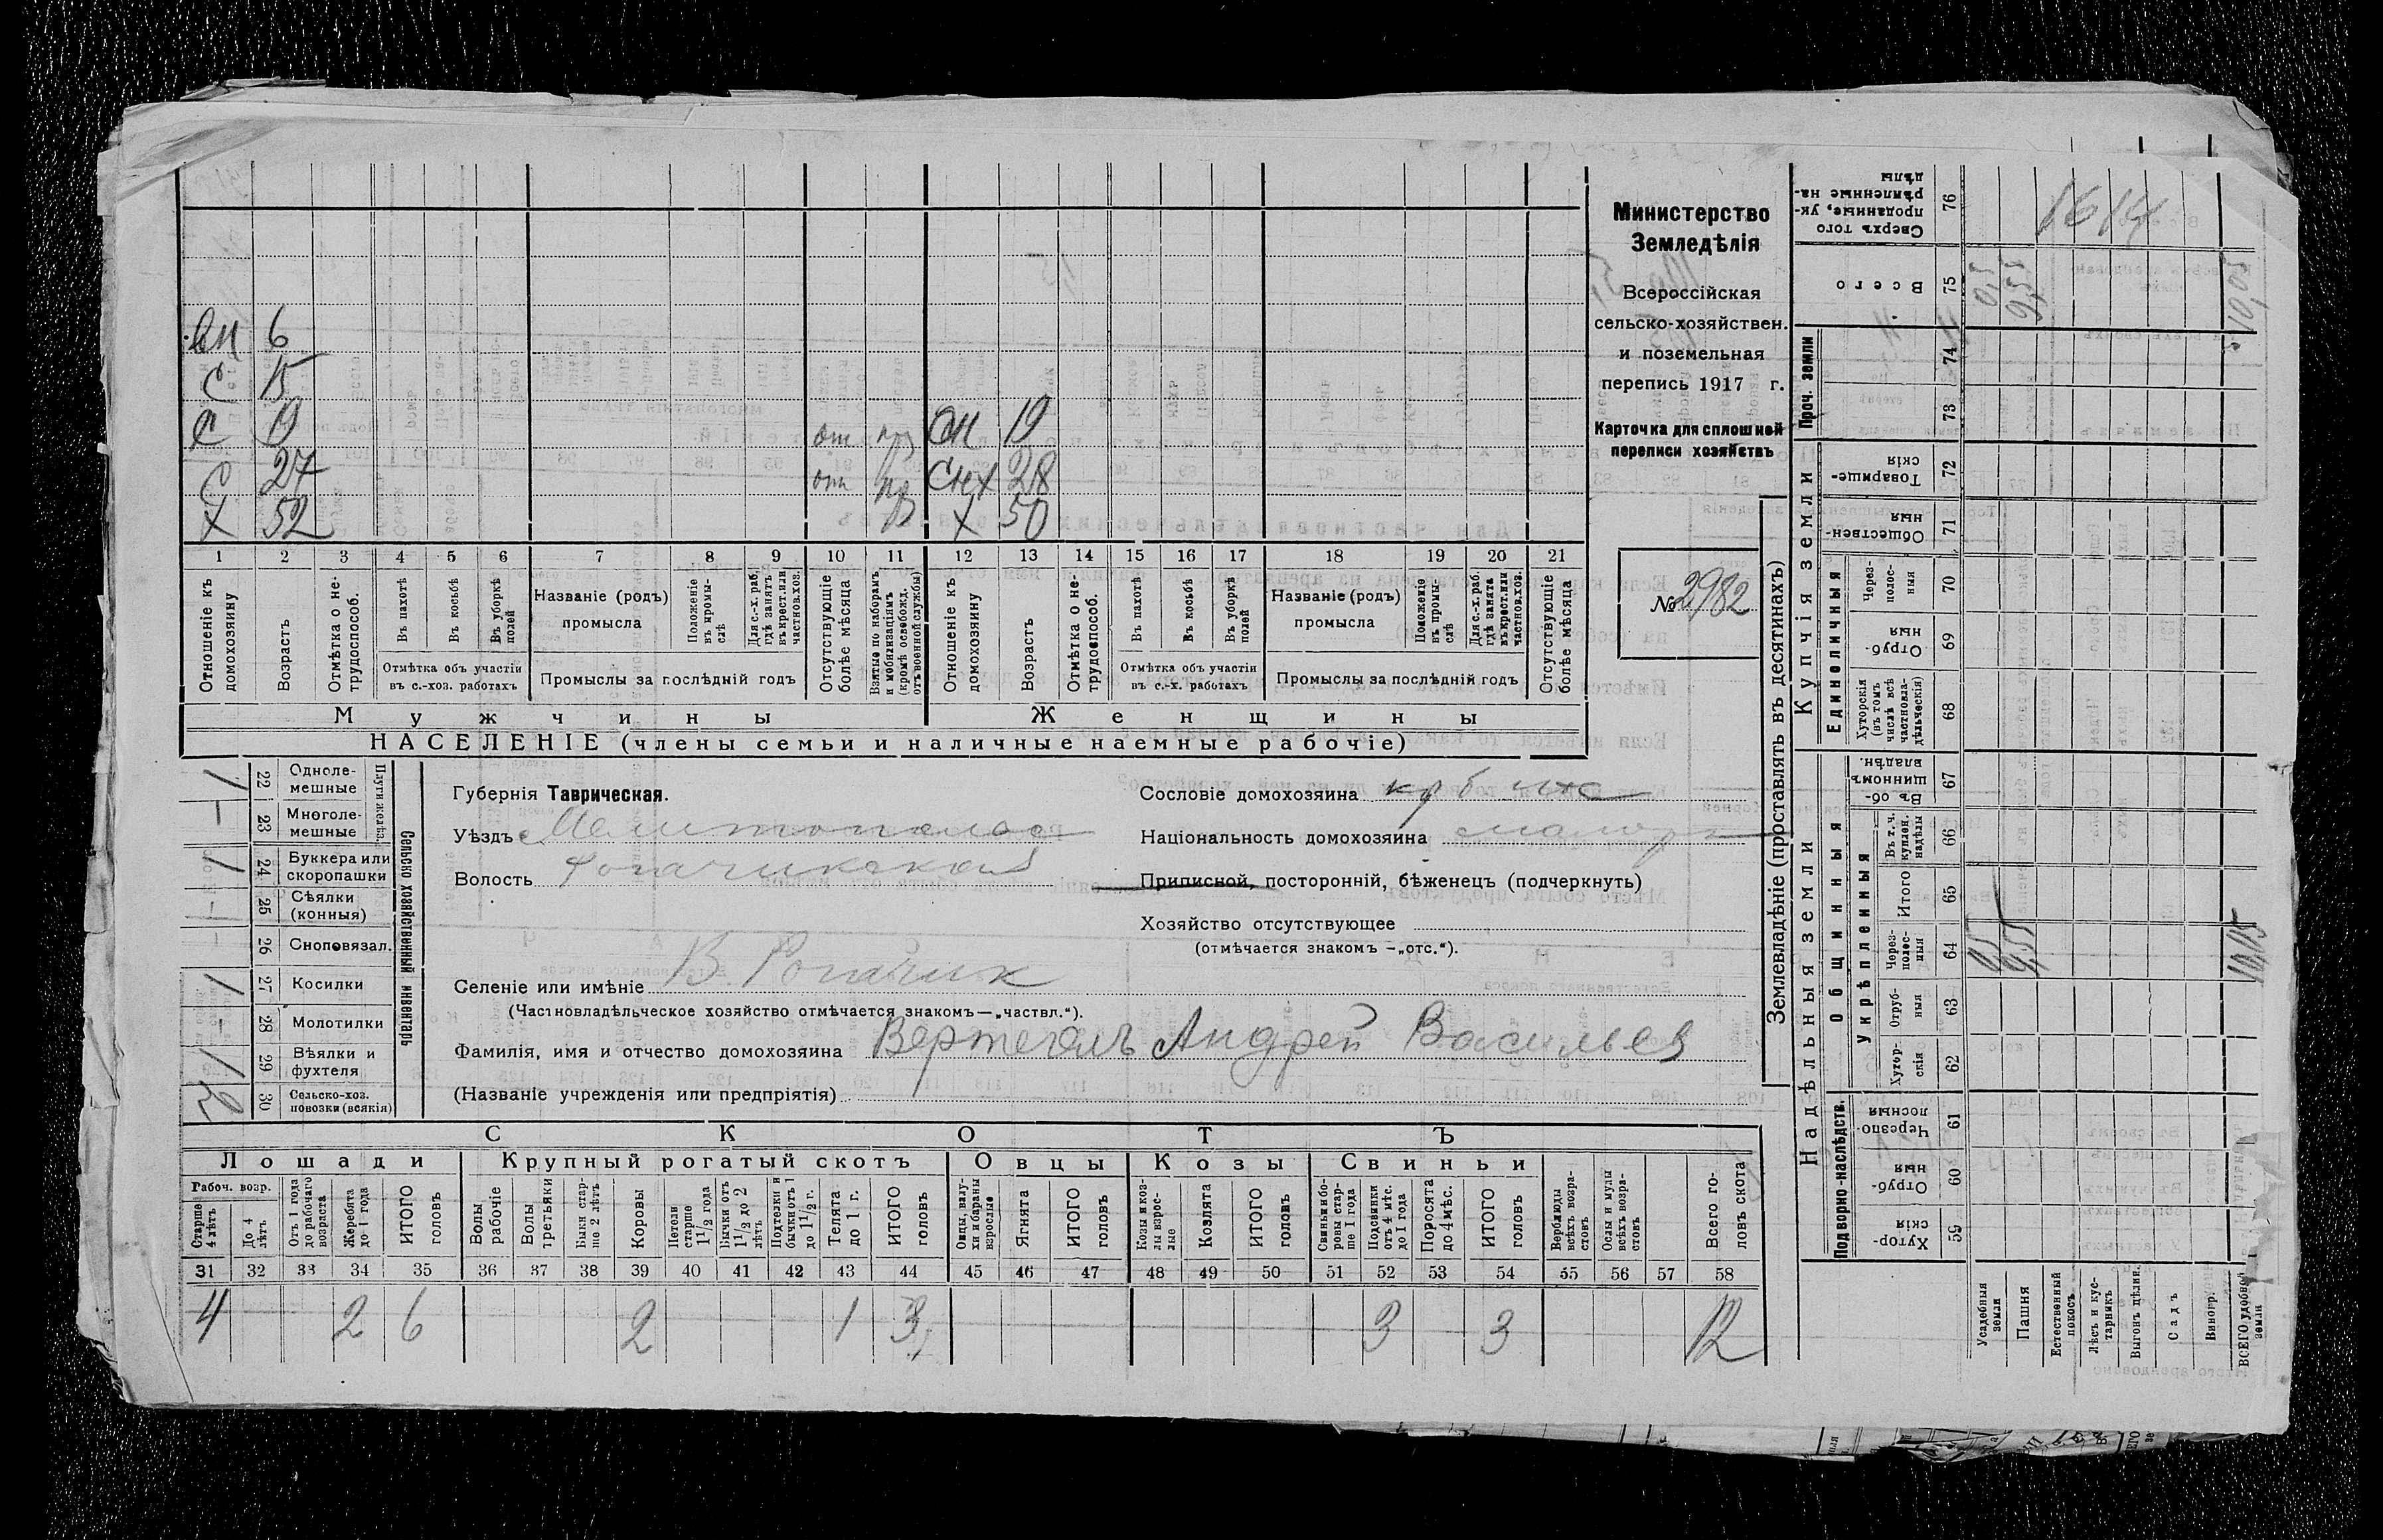 Министерство
Земледѣлія
Всероссійская
сельско-хозяйствен.
и поземельная
перепись 1917 г.
Карточка для сплошной
переписи хозяйствъ
№ 2982
вн 6
С 15
С 19 от он 19
С 27 от снх 28
Х 52 Х 50
1 2 3 4 5 6 7 8 9 10 11 12 13 14 15 16 17 18 19 20 21
Отношеніе къ домохозяину
Возрастъ
Отмѣтка о нетрудоспособ.
Въ пахотѣ
Въ косьбѣ
Въ уборкѣ полей
Отмѣтка объ участіи
въ с.-хоз. работахъ
Названіе (родъ)
промысла
Положеніе въ промыслѣ
Для с.-х. раб. гдѣ занятъ въ крест. или частнов. хоз.
Промыслы за послѣдній годъ
Отсутствующіе болѣе мѣсяца
Взятые по наборамъ и мобилизаціямъ (кромѣ освобожд. отъ военной службы)
Отношеніе къ домохозяину
Возрастъ
Отмѣтка о нетрудоспособ.
Въ пахотѣ
Въ косьбѣ
Въ уборкѣ полей
Отмѣтка объ участіи
въ с.-х. работахъ
Названіе (родъ)
промысла
Положеніе въ промыслѣ
Для с.-х. раб. гдѣ занята въ крест. или частнов. хоз.
Промыслы за послѣдній годъ
Отсутствующіе болѣе мѣсяца
Мужчины Женщины
НАСЕЛЕНІЕ (члены семьи и наличные наемные рабочіе)
Сельско хозяйственный инвентарь
Плуги желѣз.
1 22 Одноле-
мешные
— 23 Многоле-
мешные
1 24 Буккера или
скоропашки
— 25 Сѣялки
(конныя)
— 26 Сноповязал.
1 27 Косилки
— 28 Молотилки
1 29 Вѣялки и
фухтеля
2 30 Сельско-хоз.
повозки (всякія)
Губернія Таврическая.
Уѣздъ Мелитопольс
Волость Рогачикская
Селеніе или имѣніе В Рогачик
(Частновладѣльческое хозяйство отмѣчается знакомъ—„частвл.“).
Фамилія, имя и отчество домохозяина Вертегелъ Андрей Васильев
(Названіе учрежденія или предпріятія)
Сословіе домохозяина
Національность домохозяина малор
Приписной, посторонній, бѣженецъ (подчеркнуть)
Хозяйство отсутствующее
(отмѣчается знакомъ —„отс.“).
СКОТЪ
Лошади Крупный рогатый скотъ Овцы Козы Свиньи
Рабоч. возр.
Старше 4 лѣтъ
До 4 лѣтъ
Отъ 1 года до рабочаго возраста
Жеребята до 1 года
ИТОГО головъ
Волы рабочіе
Волы третьяки
Быки старше 2 лѣтъ
Коровы
Нетели старше 1 1/2 года
Бычки отъ 1 1/2 до 2 лѣтъ
Подтелки и бычки отъ 1 до 1 1/2 г.
Телята до 1 г.
ИТОГО головъ
Овцы, валухи и бараны взрослые
Ягнята
ИТОГО головъ
Козы и козлы взрослые
Козлята
ИТОГО головъ
Свиньи и боровы старше 1 года
Подсвинки отъ 4 мѣс. до 1 года
Поросята до 4 мѣс.
ИТОГО головъ
Верблюды всѣхъ возрастовъ
Ослы и мулы всѣхъ возрастовъ
Всего головъ скота
31 32 33 34 35 36 37 38 39 40 41 42 43 44 45 46 47 48 49 50 51 52 53 54 55 56 57 58
4 2 6 2 1 3 3 3 12
Землевладѣніе (проставлять въ десятинахъ)
Надѣльныя земли
Купчія земли
Проч. земли
Подворно-наслѣдств.
Общинныя
Укрѣпленныя
Единоличныя
Сверхъ того проданные, укрѣпленные надѣлы 76
Всего 75 0,5 9,55 10,05
74
73
Товарищескія 72
Общественныя 71
Черезполосныя 70
Отрубныя 69
Хуторскія (въ томъ числѣ всѣ частновладѣльческія) 68
Въ общинномъ владѣн. 67
Въ т. ч. куплен. надѣлы 66
Итого 65
Черезполосныя 64
Отрубныя 63
Хуторскія 62
Черезполосныя 61
Отрубныя 60
Хуторскія 59
Усадебныя земли
Пашня
Естественный покосъ
Лѣсъ и кустарникъ
Выгонъ дѣлян.
Садъ
Виногр.
ВСЕГО удобной земли